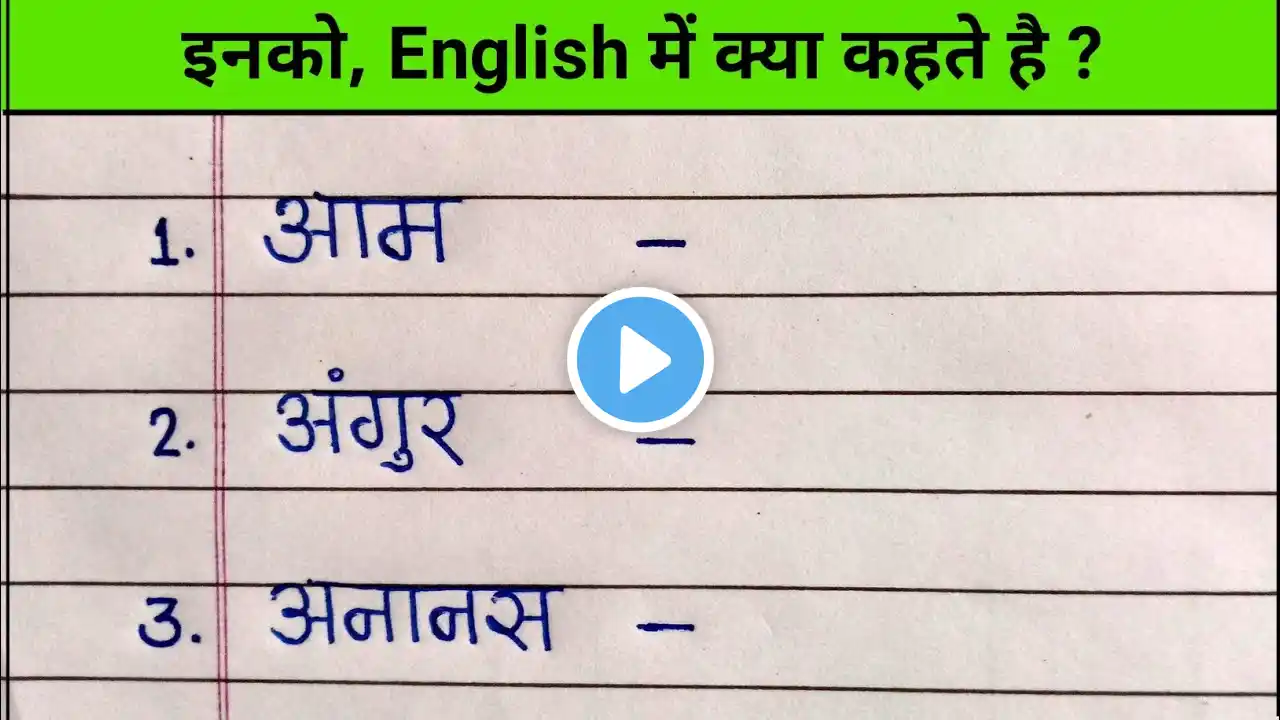 इनको, English में क्या कहते है ?
1. आम –
2. अंगुर –
3. अनानस –